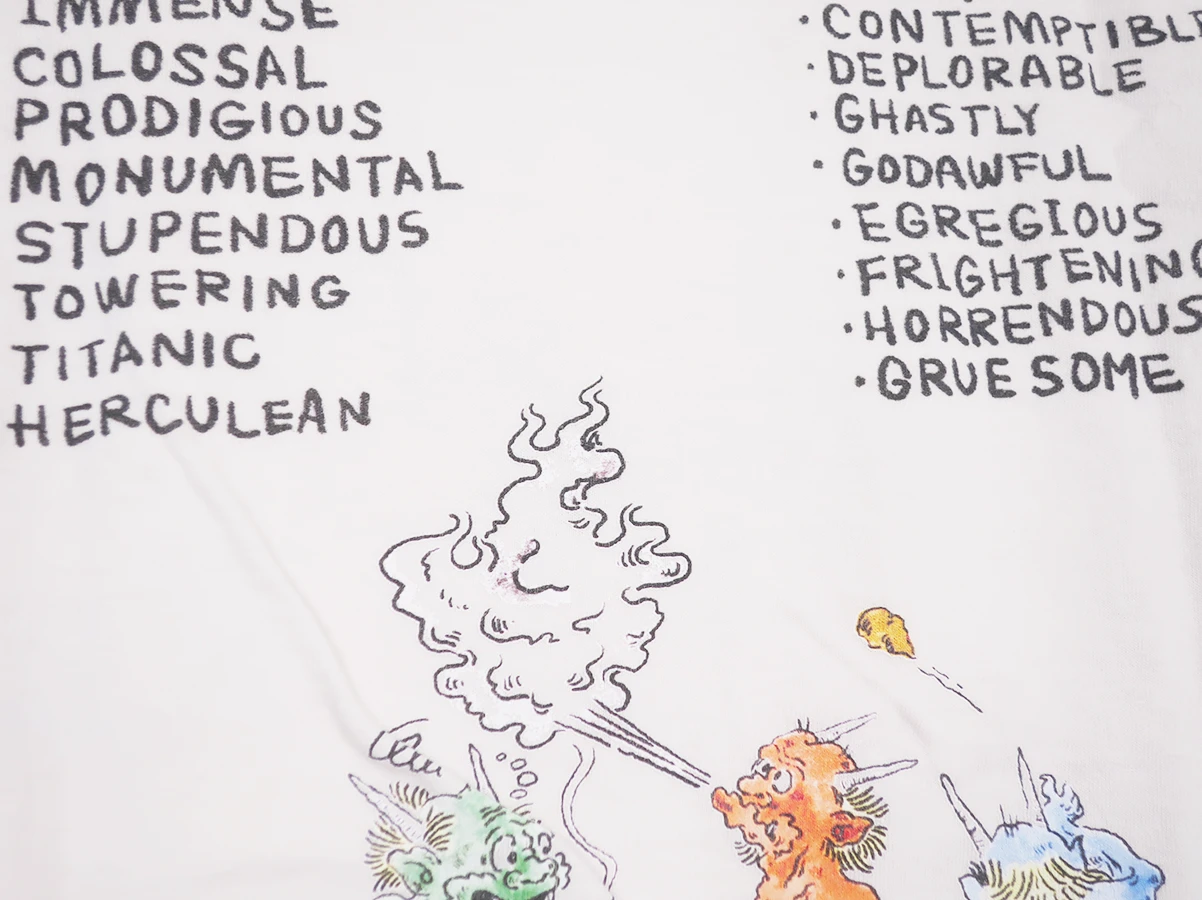 IMMENSE
COLOSSAL
PRODIGIOUS
MONUMENTAL
STUPENDOUS
TOWERING
TITANIC
HERCULEAN
· CONTEMPTIBL
· DEPLORABLE
· GHASTLY
· GODAWFUL
· EGREGIOUS
· FRIGHTENING
· HORRENDOUS
· GRUESOME